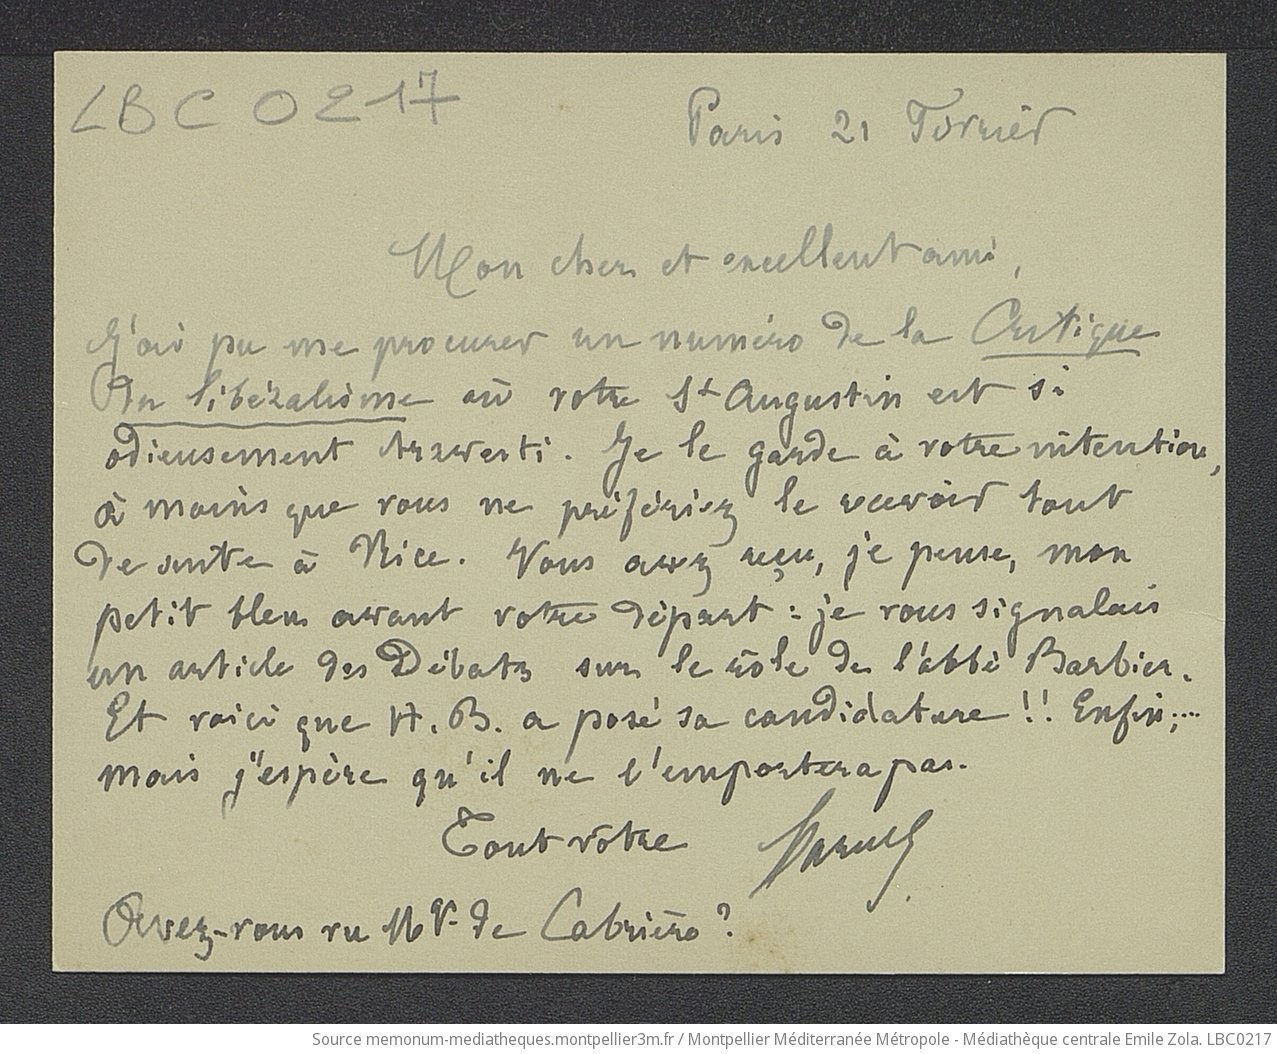 LBC 0217
Paris 21 Février
Mon cher et excellent ami,
J'ai pu me procurer un numéro de la Critique
du libéralisme où votre St Augustin est si
odieusement travesti. Je le garde à votre intention,
à moins que vous ne préfériez le recevoir tout
de suite à Nice. Vous avez reçu, je pense, mon
petit bleu avant votre départ : je vous signalais
un article des Débats sur le rôle de l'abbé Barbier.
Et voici que H. B. a posé sa candidature !! Enfin;...
mais j'espère qu'il ne l'emportera pas.
Tout vôtre
Avez-vous vu Mgr de Cabrières ?
Source memonum-mediatheques.montpellier3m.fr / Montpellier Méditerranée Métropole - Médiathèque centrale Emile Zola. LBC0217